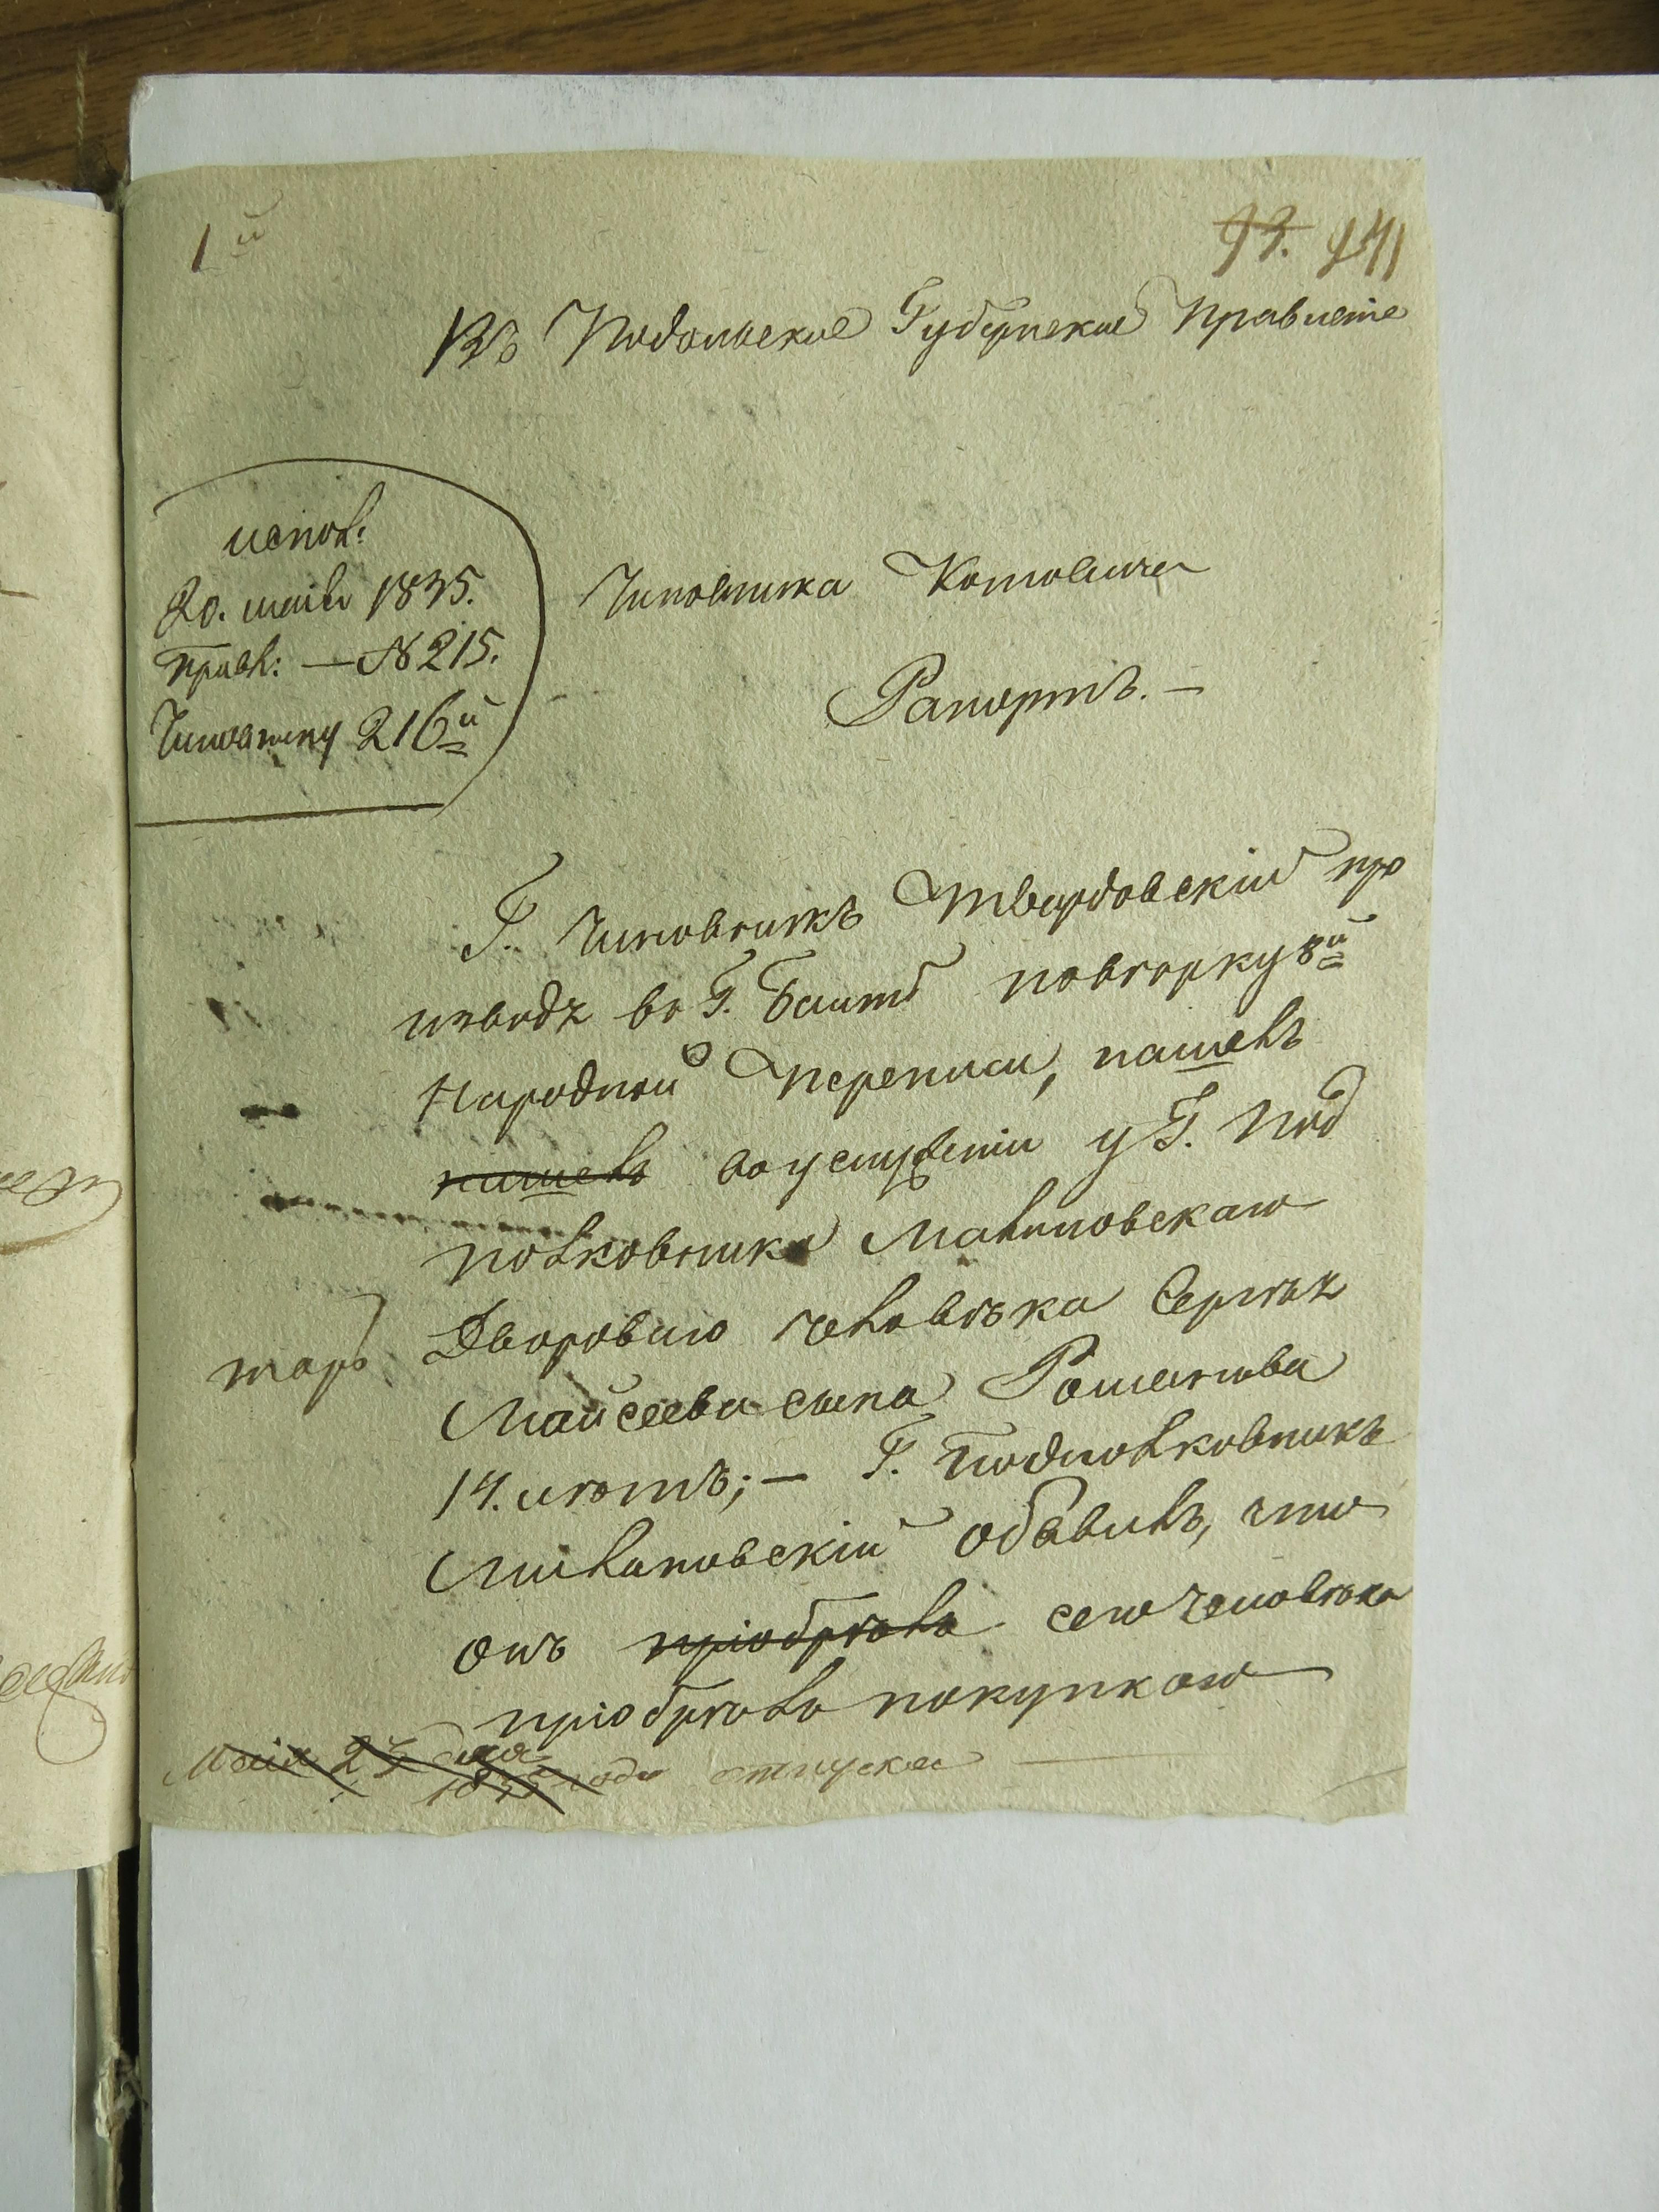 1й
93. 
Въ Подольское Губернское Правленіе
испол:
20. маія 1835.
Правл: — № 215.
Чиновнику 216й
Чиновника Котовича
Рапортъ. —
Г. Чиновникъ Твардовскій про
изводя въ Г. Балтѣ повѣрку 8й
Народной Переписи, нашелъ
нашелъ въ услуженіи у Г. Под
полковника Малиновскаго
Двороваго человѣка Сергѣя
Мойсеева сына Романова
14. лѣтъ; — Г. Подполковникъ
Малиновскій объявилъ, что
онъ пріобрѣлъ сего человѣка
пріобрѣлъ покупкою
Маія 23 дня
1835 года отпускъ